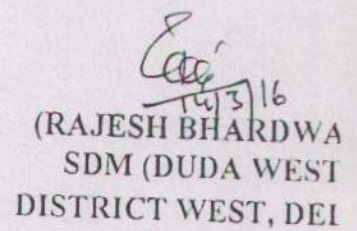 14/3/16
(RAJESH BHARDWA
SDM (DUDA WEST
DISTRICT WEST, DEL